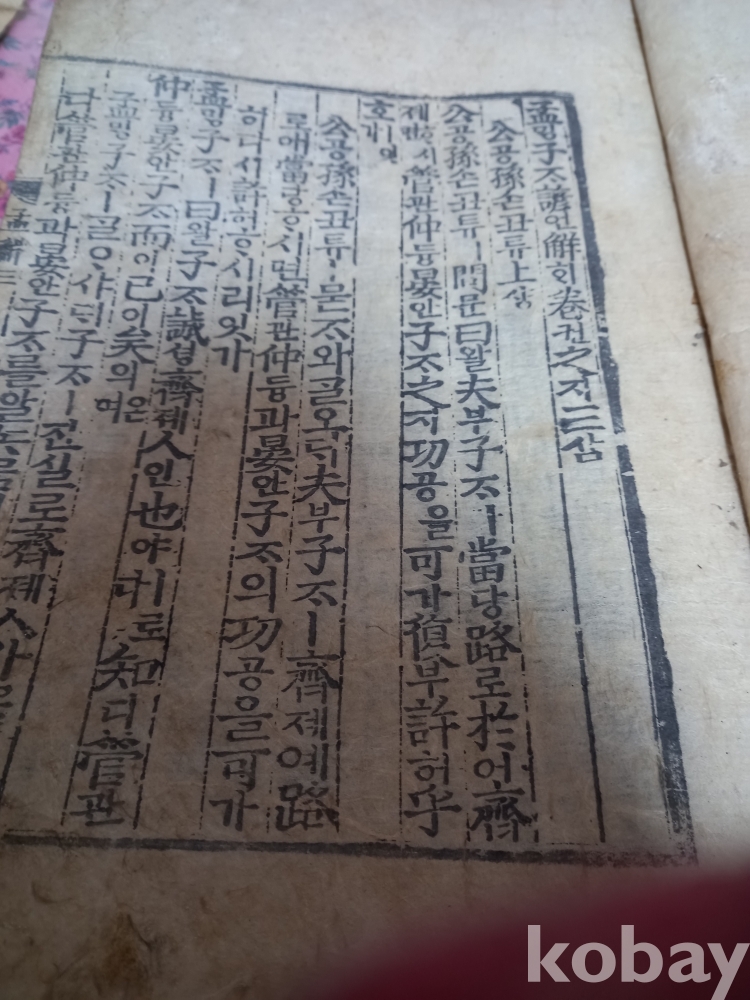 孟ᄆᆡᆼ子ᄌᆞ諺언解ᄒᆡ卷권之지三삼
公공孫손丑튜上샹
公공孫손丑튜ㅣ問문曰왈夫부子ᄌᆞㅣ當당路로於어齊
제ᄒᆞ시면管관仲듕晏안子ᄌᆞ之지功공을可가復부許허乎
호ㅣ잇가
公공孫손丑튜ㅣ묻ᄌᆞ와ᄀᆞᆯ오ᄃᆡ夫부子ᄌᆞㅣ齊제예路
로애當당ᄒᆞ시면管관仲듕과晏안子ᄌᆞ의功공을可가
히다시許허ᄒᆞ시리잇가
孟ᄆᆡᆼ子ᄌᆞㅣ曰왈子ᄌᆞ誠셩齊졔人인也야ㅣ로다知디管관
仲듕晏안子ᄌᆞ而이已이矣의여은
孟ᄆᆡᆼ子ᄌᆞㅣᄀᆞᆯᄋᆞ샤ᄃᆡ子ᄌᆞㅣ진실로齊졔人
다管관仲듕과晏안子ᄌᆞ를알
孟解三
kobay